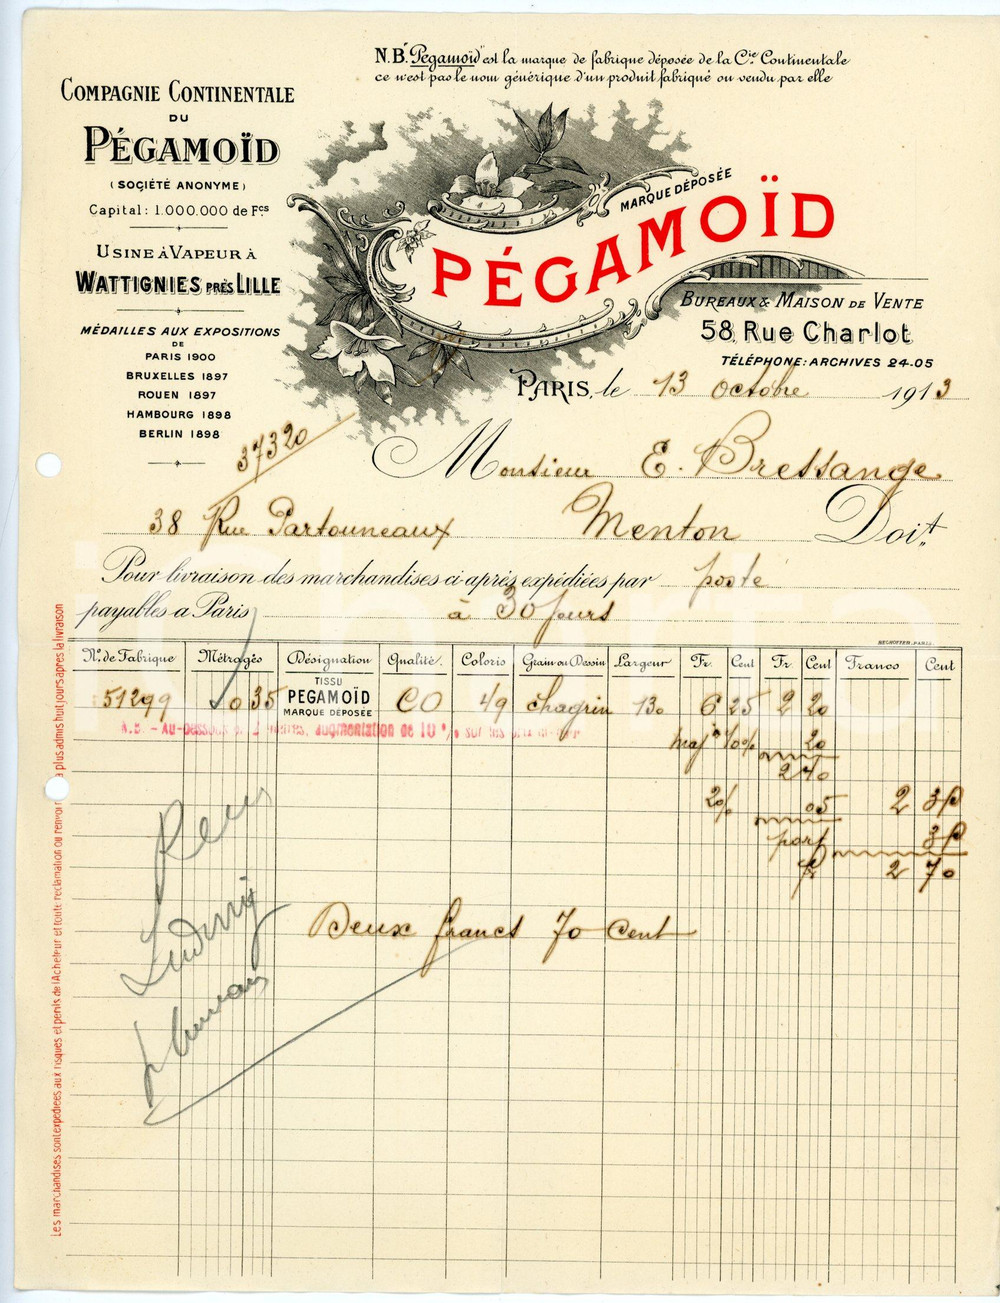 N.B. "Pégamoïd" est la marque de fabrique déposée de la Cie Continentale
ce n'est pas le nom générique d'un produit fabriqué ou vendu par elle
COMPAGNIE CONTINENTALE
DU
PÉGAMOÏD
(SOCIÉTÉ ANONYME)
Capital: 1.000.000 de Fcs
USINE À VAPEUR À
WATTIGNIES PRÈS LILLE
MÉDAILLES AUX EXPOSITIONS
DE
PARIS 1900
BRUXELLES 1897
ROUEN 1897
HAMBOURG 1898
BERLIN 1898
MARQUE DÉPOSÉE
PÉGAMOÏD
BUREAUX & MAISON DE VENTE
58, Rue Charlot
TÉLÉPHONE: ARCHIVES 24-05
PARIS, le 13 octobre 1913
37320
Monsieur E. Bressange
38 Rue Partouneaux Menton Doit
Pour livraison des marchandises ci-après expédiées par poste
payables à Paris à 30 jours
HELHOFFER. PARIS.
No. de Fabrique Métrages Désignation Qualité. Coloris Grain ou Dessin Largeur Fr. Cent Fr. Cent Francs Cent
51299 0 35 TISSU PEGAMOÏD MARQUE DÉPOSÉE CO 49 chagrin 130 6 25 2 20
N.B. - Au-dessous de 2 mètres, augmentation de 10 % sur les prix du tarif
maj on 10% 20
2 40
2% 05 2 35
port 35
fr 2 70
Deux francs 70 cent
Ludwig
Les marchandises sont expédiées aux risques et périls de l'Acheteur et toute réclamation ou renvoi plus admis huit jours après la livraison